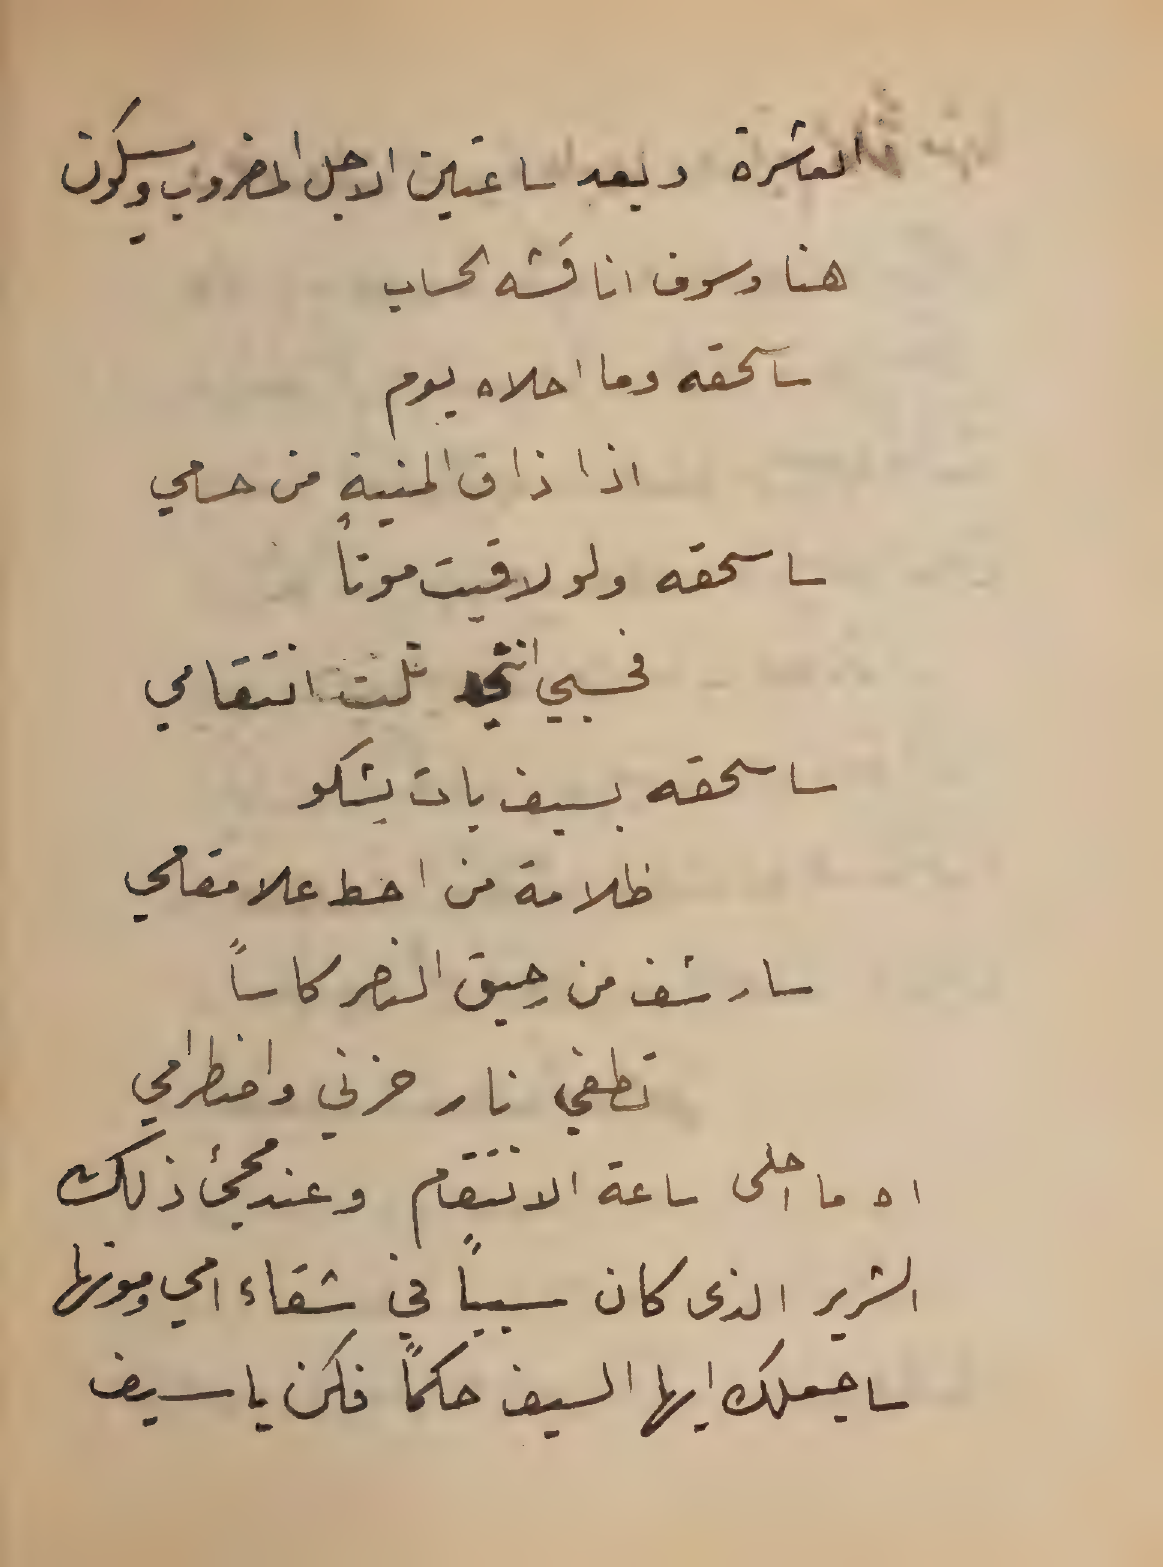 العاشرة وبعد ساعتين الاجل المضروب وسيكون
هنا وسوف اناقشه الحساب
ساسحقه وما احلاه يوم
اذا ذاق المنية من حسامي
ساسحقه ولو لاقيت موتاً
فحسبي انني نلت انتقامي
ساسحقه بسيف بات يشكو
ظلامة من احط علا مقامي
سارشف من رحيق النصر كاساً
تطفي نار حزني واضطرامي
اه ما احلى ساعة الانتقام وعند مجئ ذلك
الشرير الذى كان سبباً في شقاء امي وموتها
ساجعلك ايها السيف حكماً فكن يا سيف